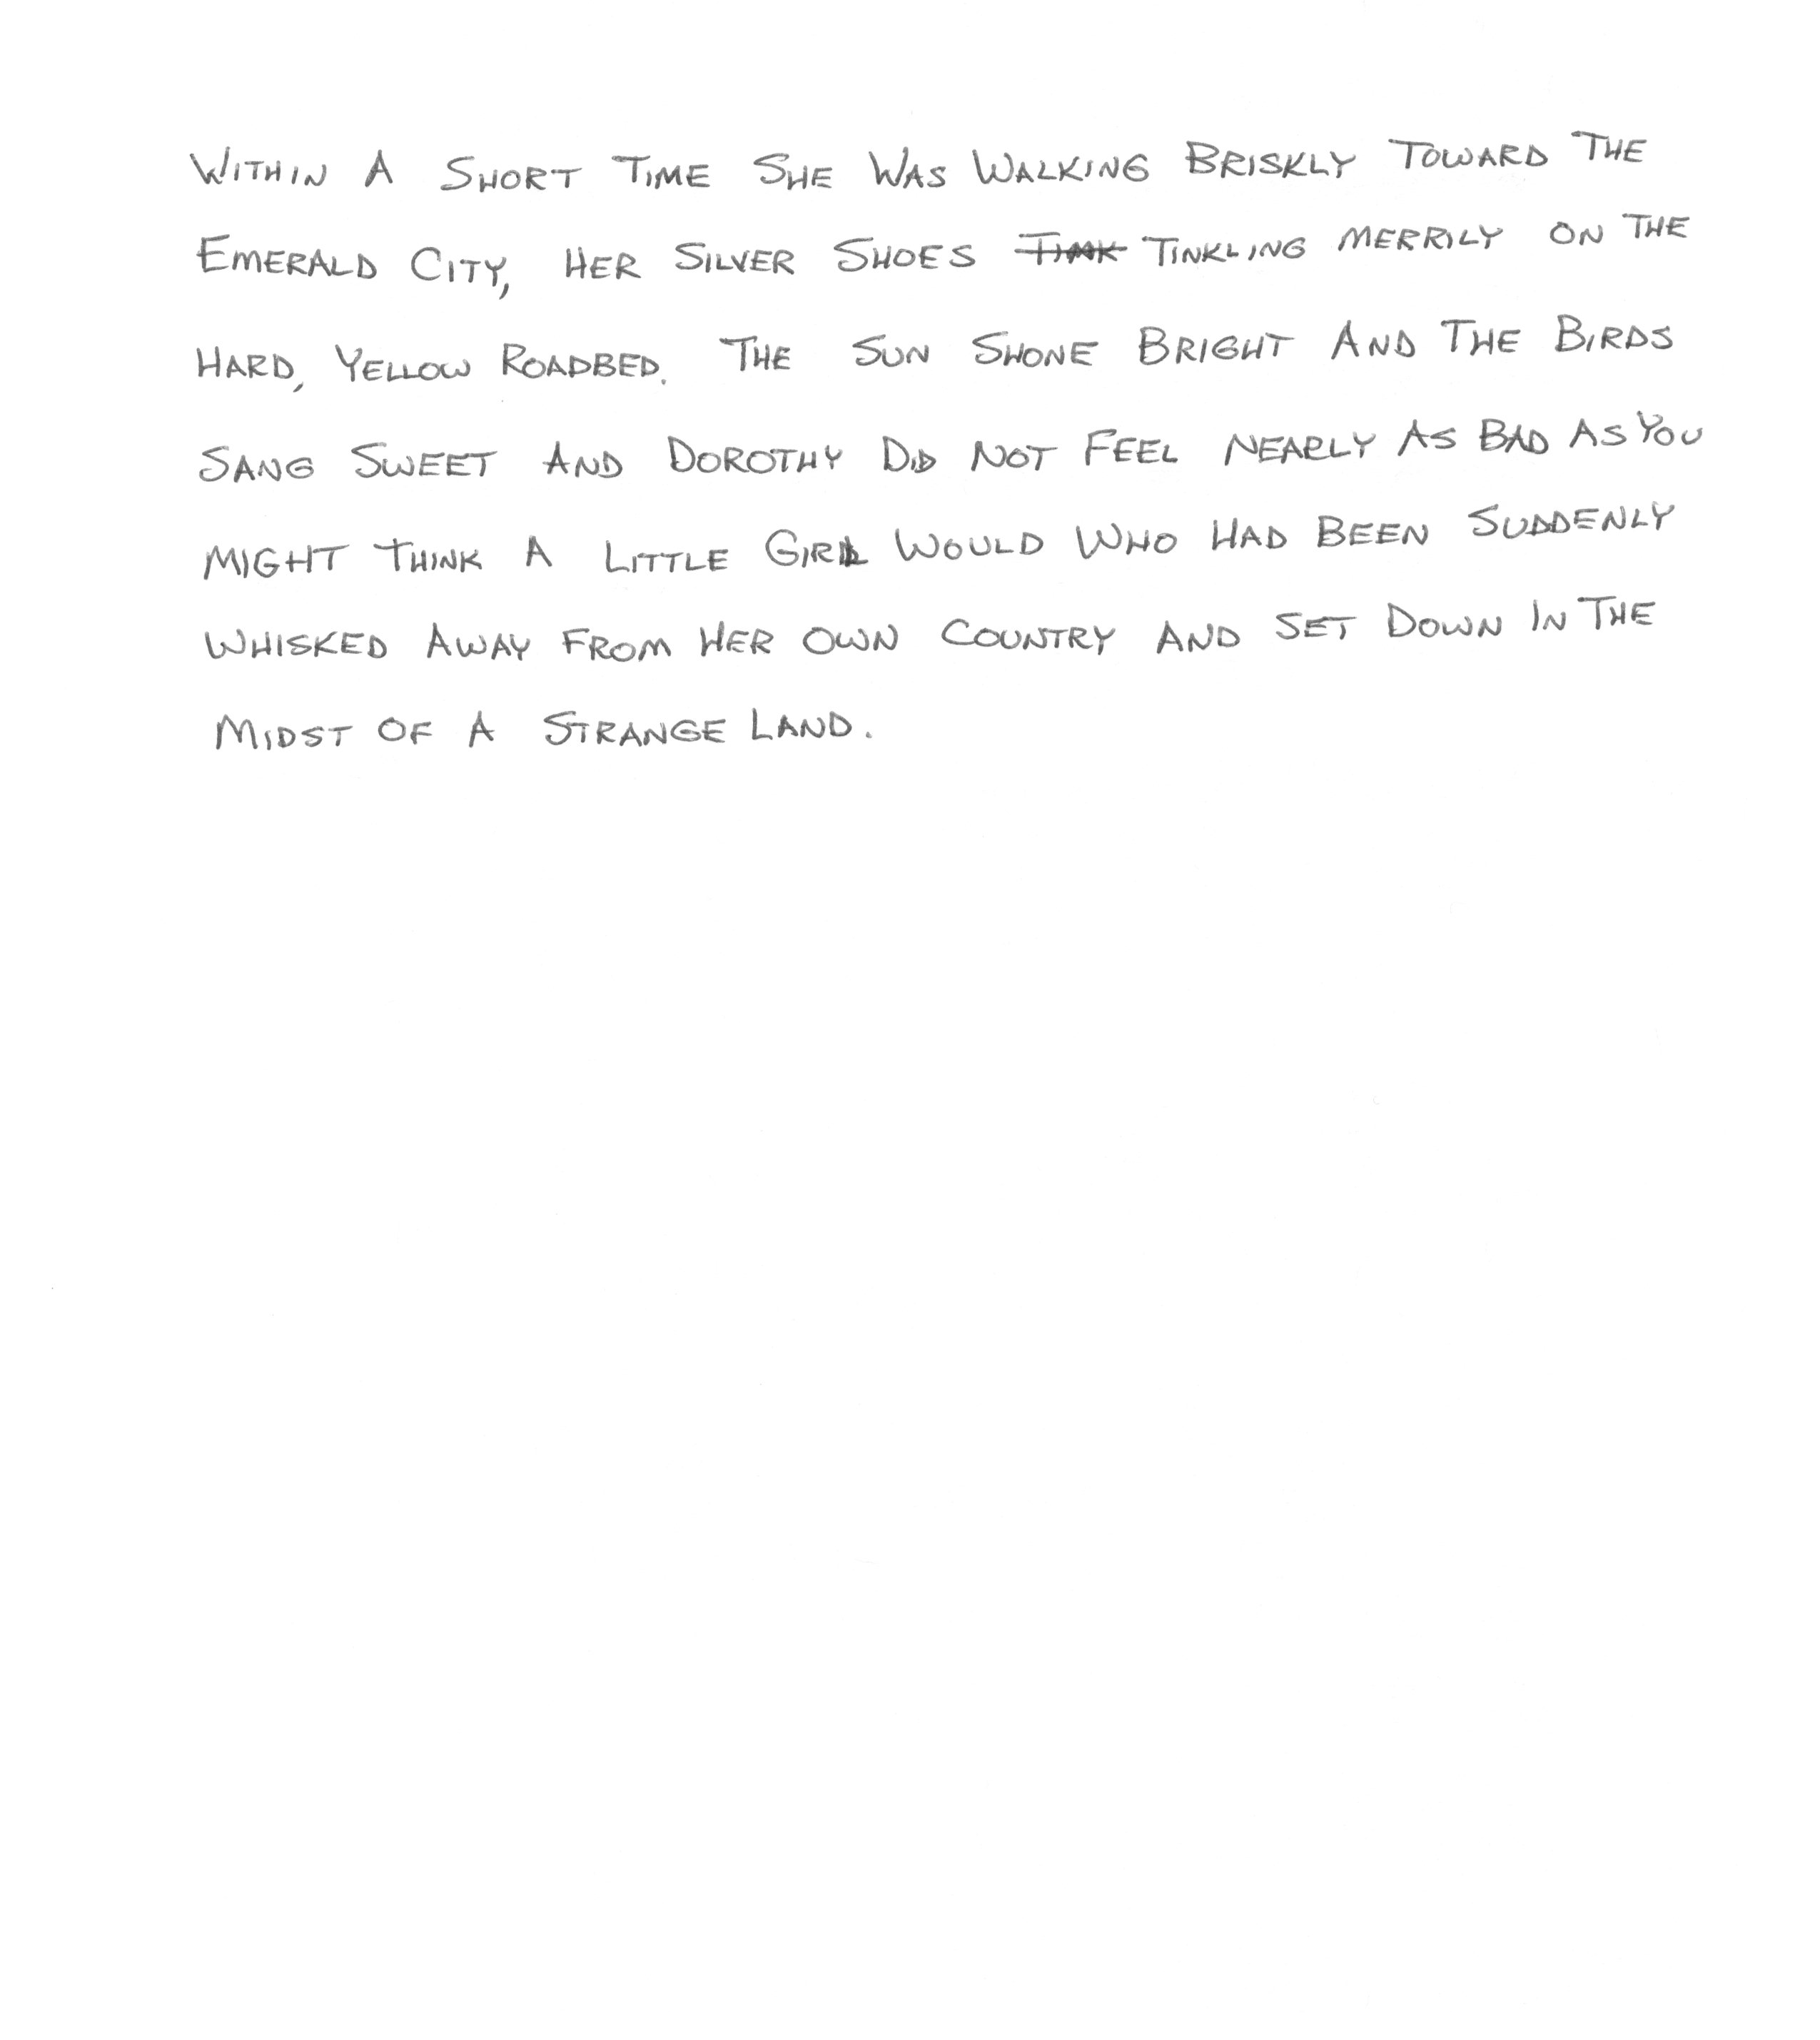 WITHIN A SHORT TIME SHE WAS WALKING BRISKLY TOWARD THE
EMERALD CITY, HER SILVER SHOES TINKLING MERRILY ON THE
HARD, YELLOW ROADBED. THE SUN SHONE BRIGHT AND THE BIRDS
SANG SWEET AND DOROTHY DID NOT FEEL NEARLY AS BAD AS YOU
MIGHT THINK A LITTLE GIRL WOULD WHO HAD BEEN SUDDENLY
WHISKED AWAY FROM HER OWN COUNTRY AND SET DOWN IN THE
MIDST OF A STRANGE LAND.